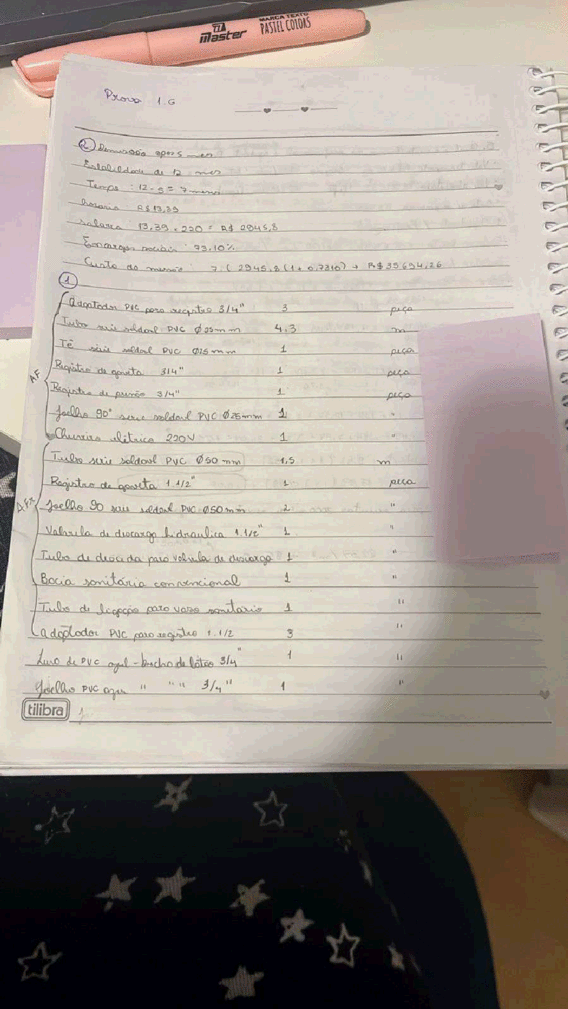 MARCA TEXTO
Master PASTEL COIDAS
Prova 1.G
② Demissão após 5 mês
Estabilidade de 12 mês
Tempo : 12-5 = 7 meses
horario R$ 13,39
salario 13,39 . 220 = R$ 2945,8
Encargos sociais : 73,10%
Custo de menos : 7 (2945,8 (1 + 0,7310) → R$ 35694,26
①
Adaptador PVC para registro 3/4" 3 peça
Tubo série soldavel PVC Ø 25mm 4,3 m
Tê série soldavel PVC Ø25 mm 1 peça
AF
Registro de gaveta 3/4" 1 peça
Registro de pressão 3/4" 1 peça
Joelho 90° serie soldavel PVC Ø 25mm 1 "
Chuveiro elétrico 220V 1 "
Tubo série soldavel PVC Ø50 mm 1,5 m
Registro de gaveta 1.1/2" 1 peça
Joelho 90 serie soldavel PVC Ø50mm 2 "
Valvula de descarga hidraulica 1.1/2" 1 "
Tubo de descida para valvula de descarga 1 "
Bacia sanitária convencional 1 "
Tubo de ligação para vaso sanitario 1 "
Adaptador PVC para registro 1.1/2 3 "
Luva de PVC azul - bucha de latão 3/4" 1 "
Joelho PVC azul " " " 3/4" 1 "
tilibra